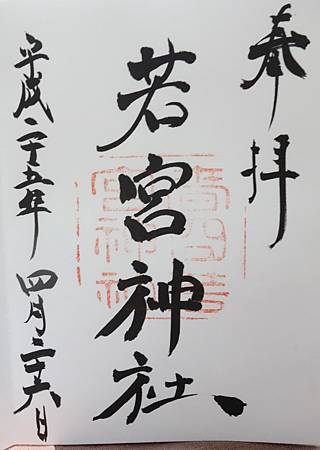 奉拝
若宮神社
平成二十五年 四月二十六日